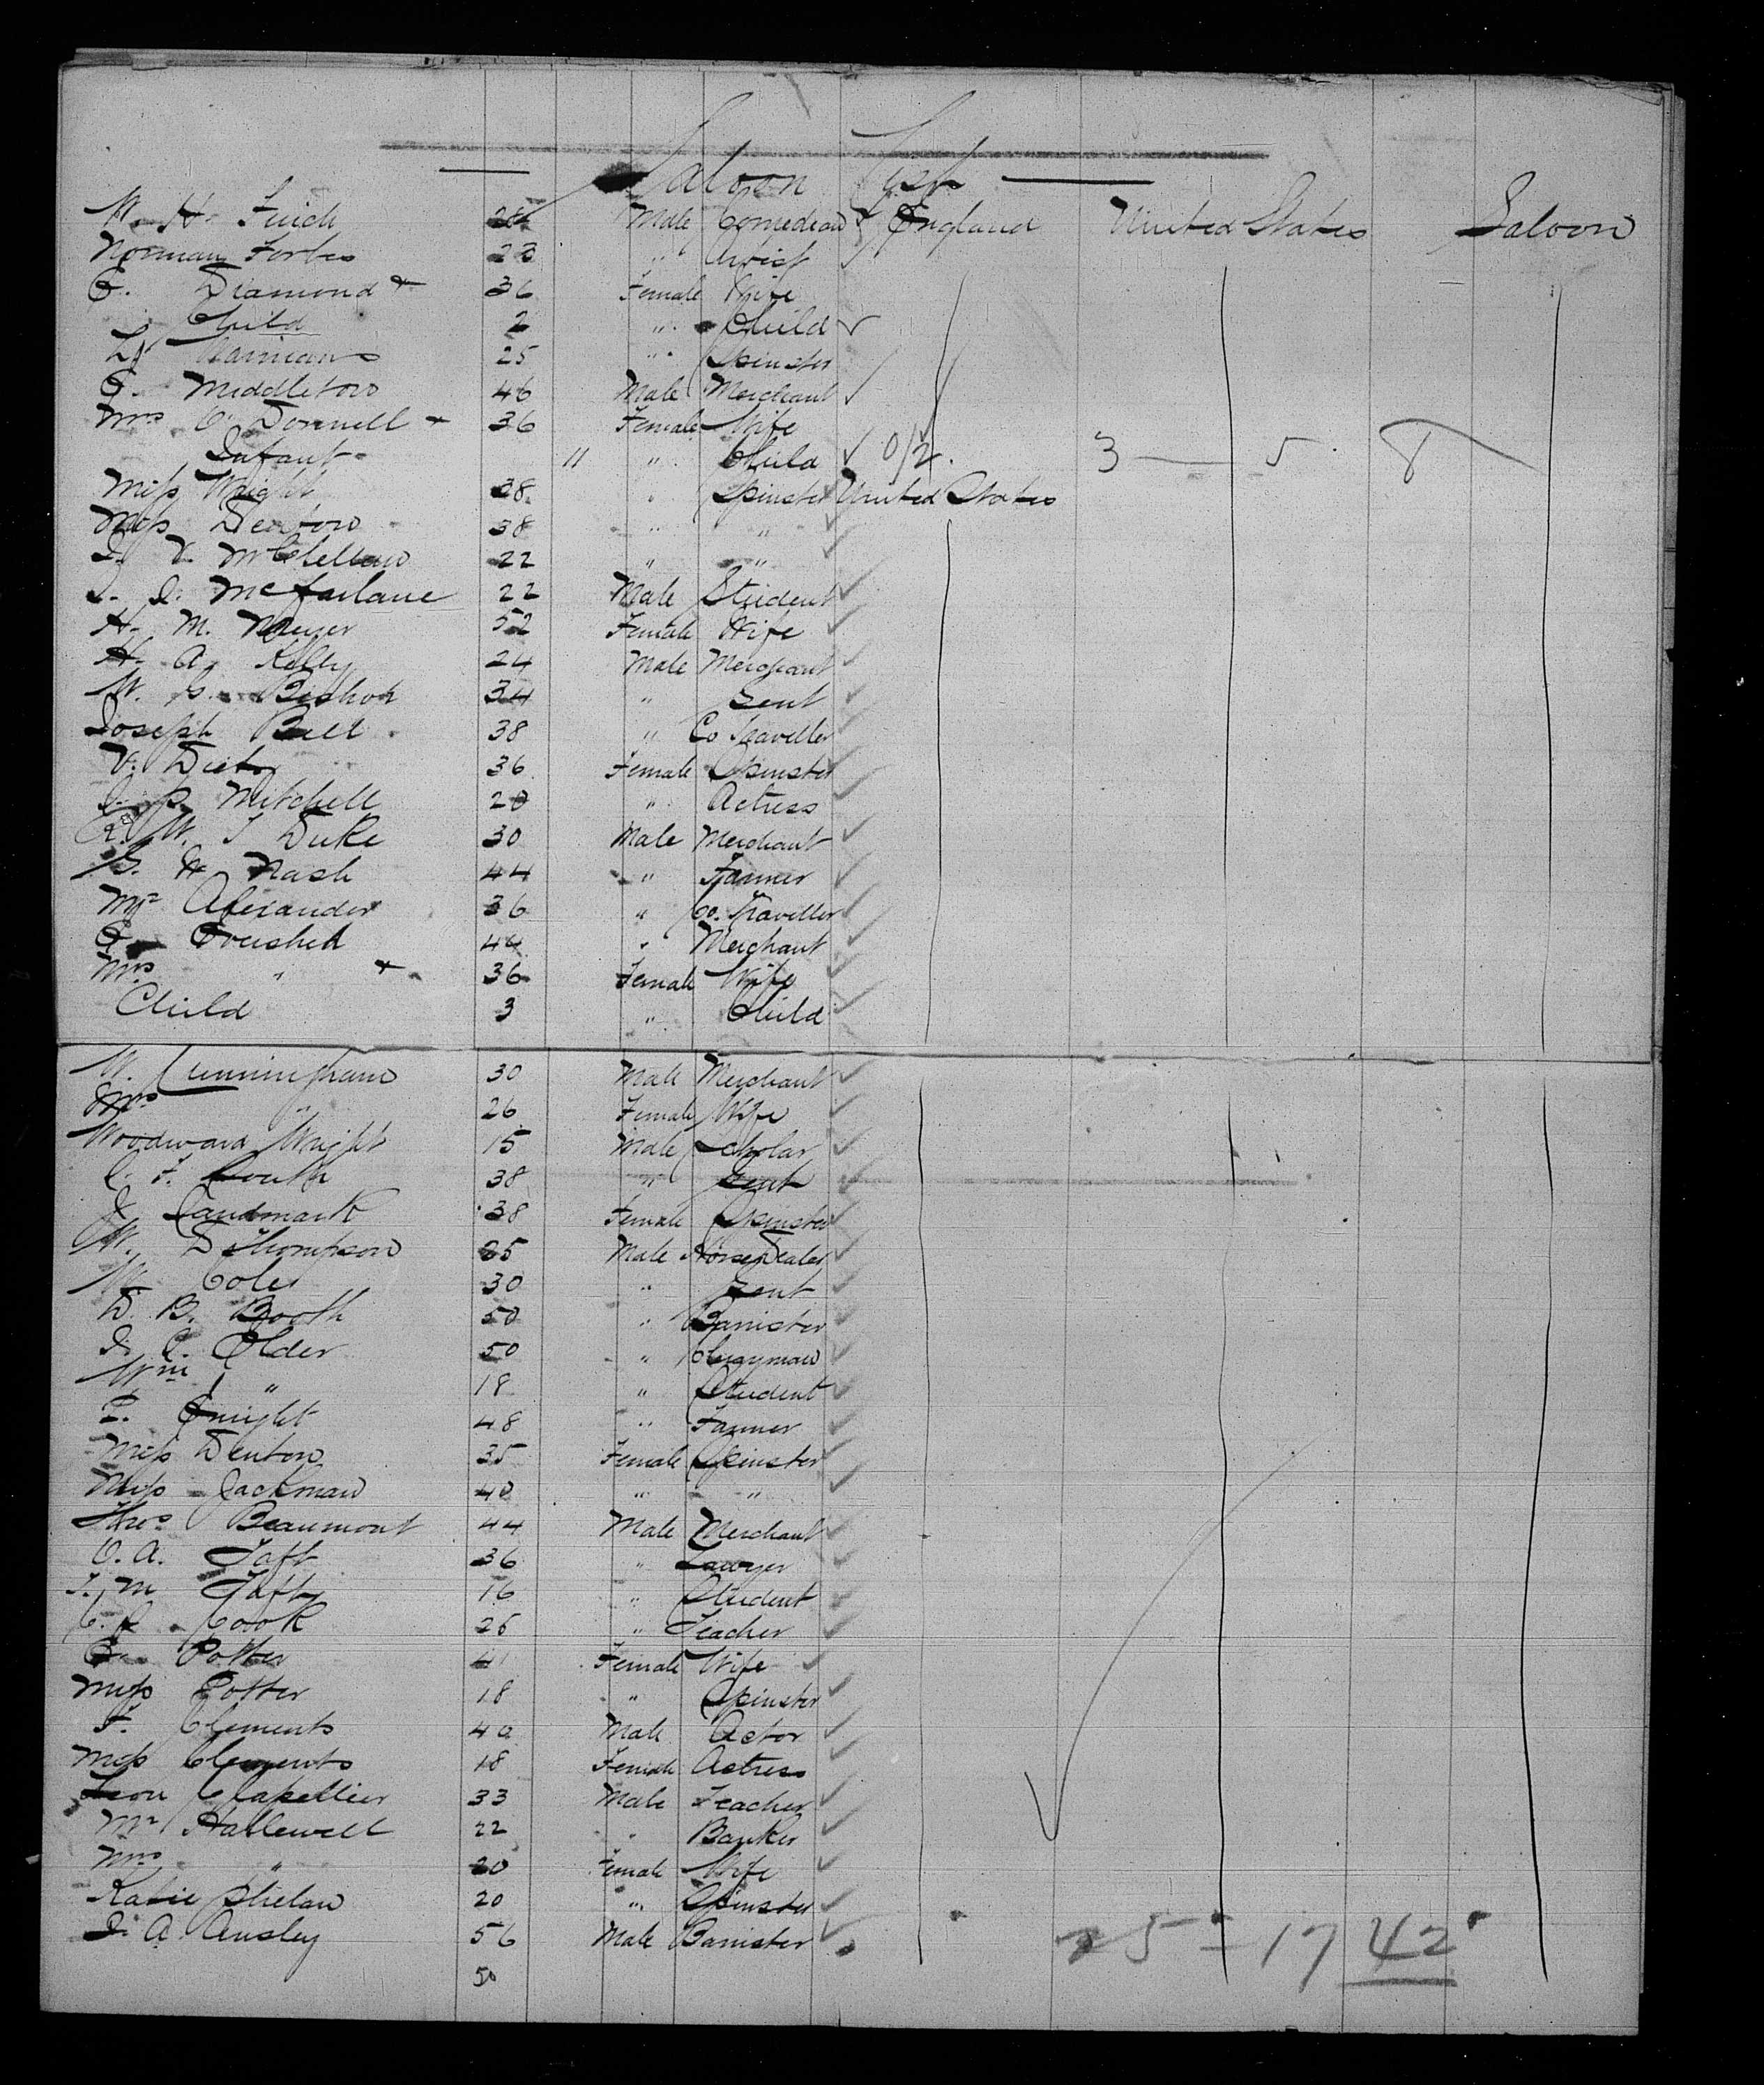 Saloon List
W. H. Finch Male Comedian England United States Saloon
Norman Forbes 23 " Artist
G. Diamond + 36 Female Wife
Child 2 " Child
25 " Spinster
G. Middleton 46 Male Merchant
Mrs O'Donnell + 36 Female Wife
Infant 11 " Child 0/2. 3 — 5 . 8
Miss Wright 38 " Spinster United States
Miss Denton 38 " "
V. McClellan 22 " "
McFarlane 22 Male Student
H. M. Meyer 52 Female Wife
H. A. Kelly 24 Male Merchant
W. G. Bishop 34 " Gent
Joseph Bell 38 " Co Traveller
V. Dietor 36 Female Spinster
J. P. Mitchell 20 " Actress
R. W. T Duke 30 Male Merchant
G. W Nash 44 " Farmer
Mr Alexander 36 " Co. Traveller
G. 44 " Merchant
Mrs " + 36 Female Wife
Child 3 " Child
W. Cunningham 30 Male Merchant
Mrs " 26 Female Wife
Woodward Wright 15 Male Scholar
C. F. South 38 " Gent
J. Landmark 38 Female Spinster
W. D Thompson 25 Male Horse Dealer
W. Coles 30 " Gent
D. B. Booth 50 " Barrister
J. C. Elder 50 " Clergyman
Wm " 18 " Student
Enright 48 " Farmer
Miss Denton 35 Female Spinster
Miss Jackman 40 " "
Thos Beaumont 44 Male Merchant
O. A. Taft 36 " Lawyer
T. M Taft 16 " Student
C. J. Cook 25 " Teacher
E. Potter 41 Female Wife
Miss Potter 18 " Spinster
F. Clements 40 Male Actor
Miss Clements 18 Female Actress
Leon Clapellier 33 Male Teacher
Mr Hallewell 22 " Banker
Mrs " 20 Female Wife
Katie Phelan 20 " Spinster
J. A. Ansley 56 Male Barrister
25 = 17 42
50